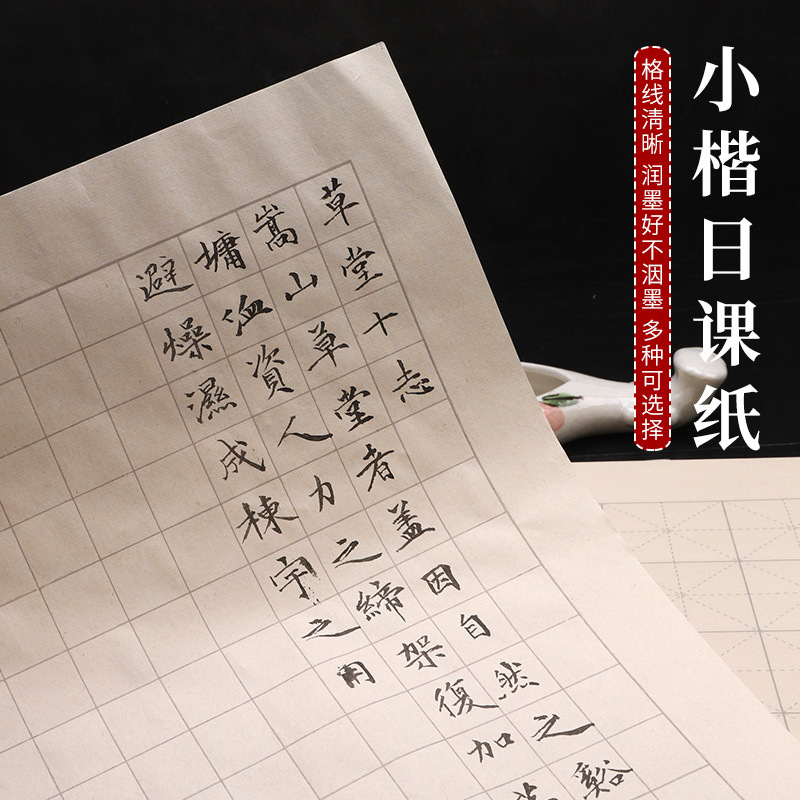 小楷日课纸
格线清晰 润墨好不洇墨 多种可选择
草堂十志
嵩山草堂者蓋因自然之谿
墉洫資人力之締架復加
避燥濕成棟宇之用